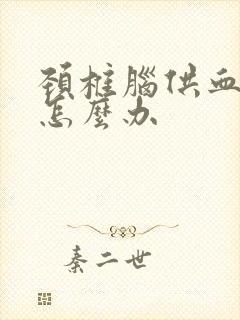 頸椎腦供血
怎麼办
秦二世